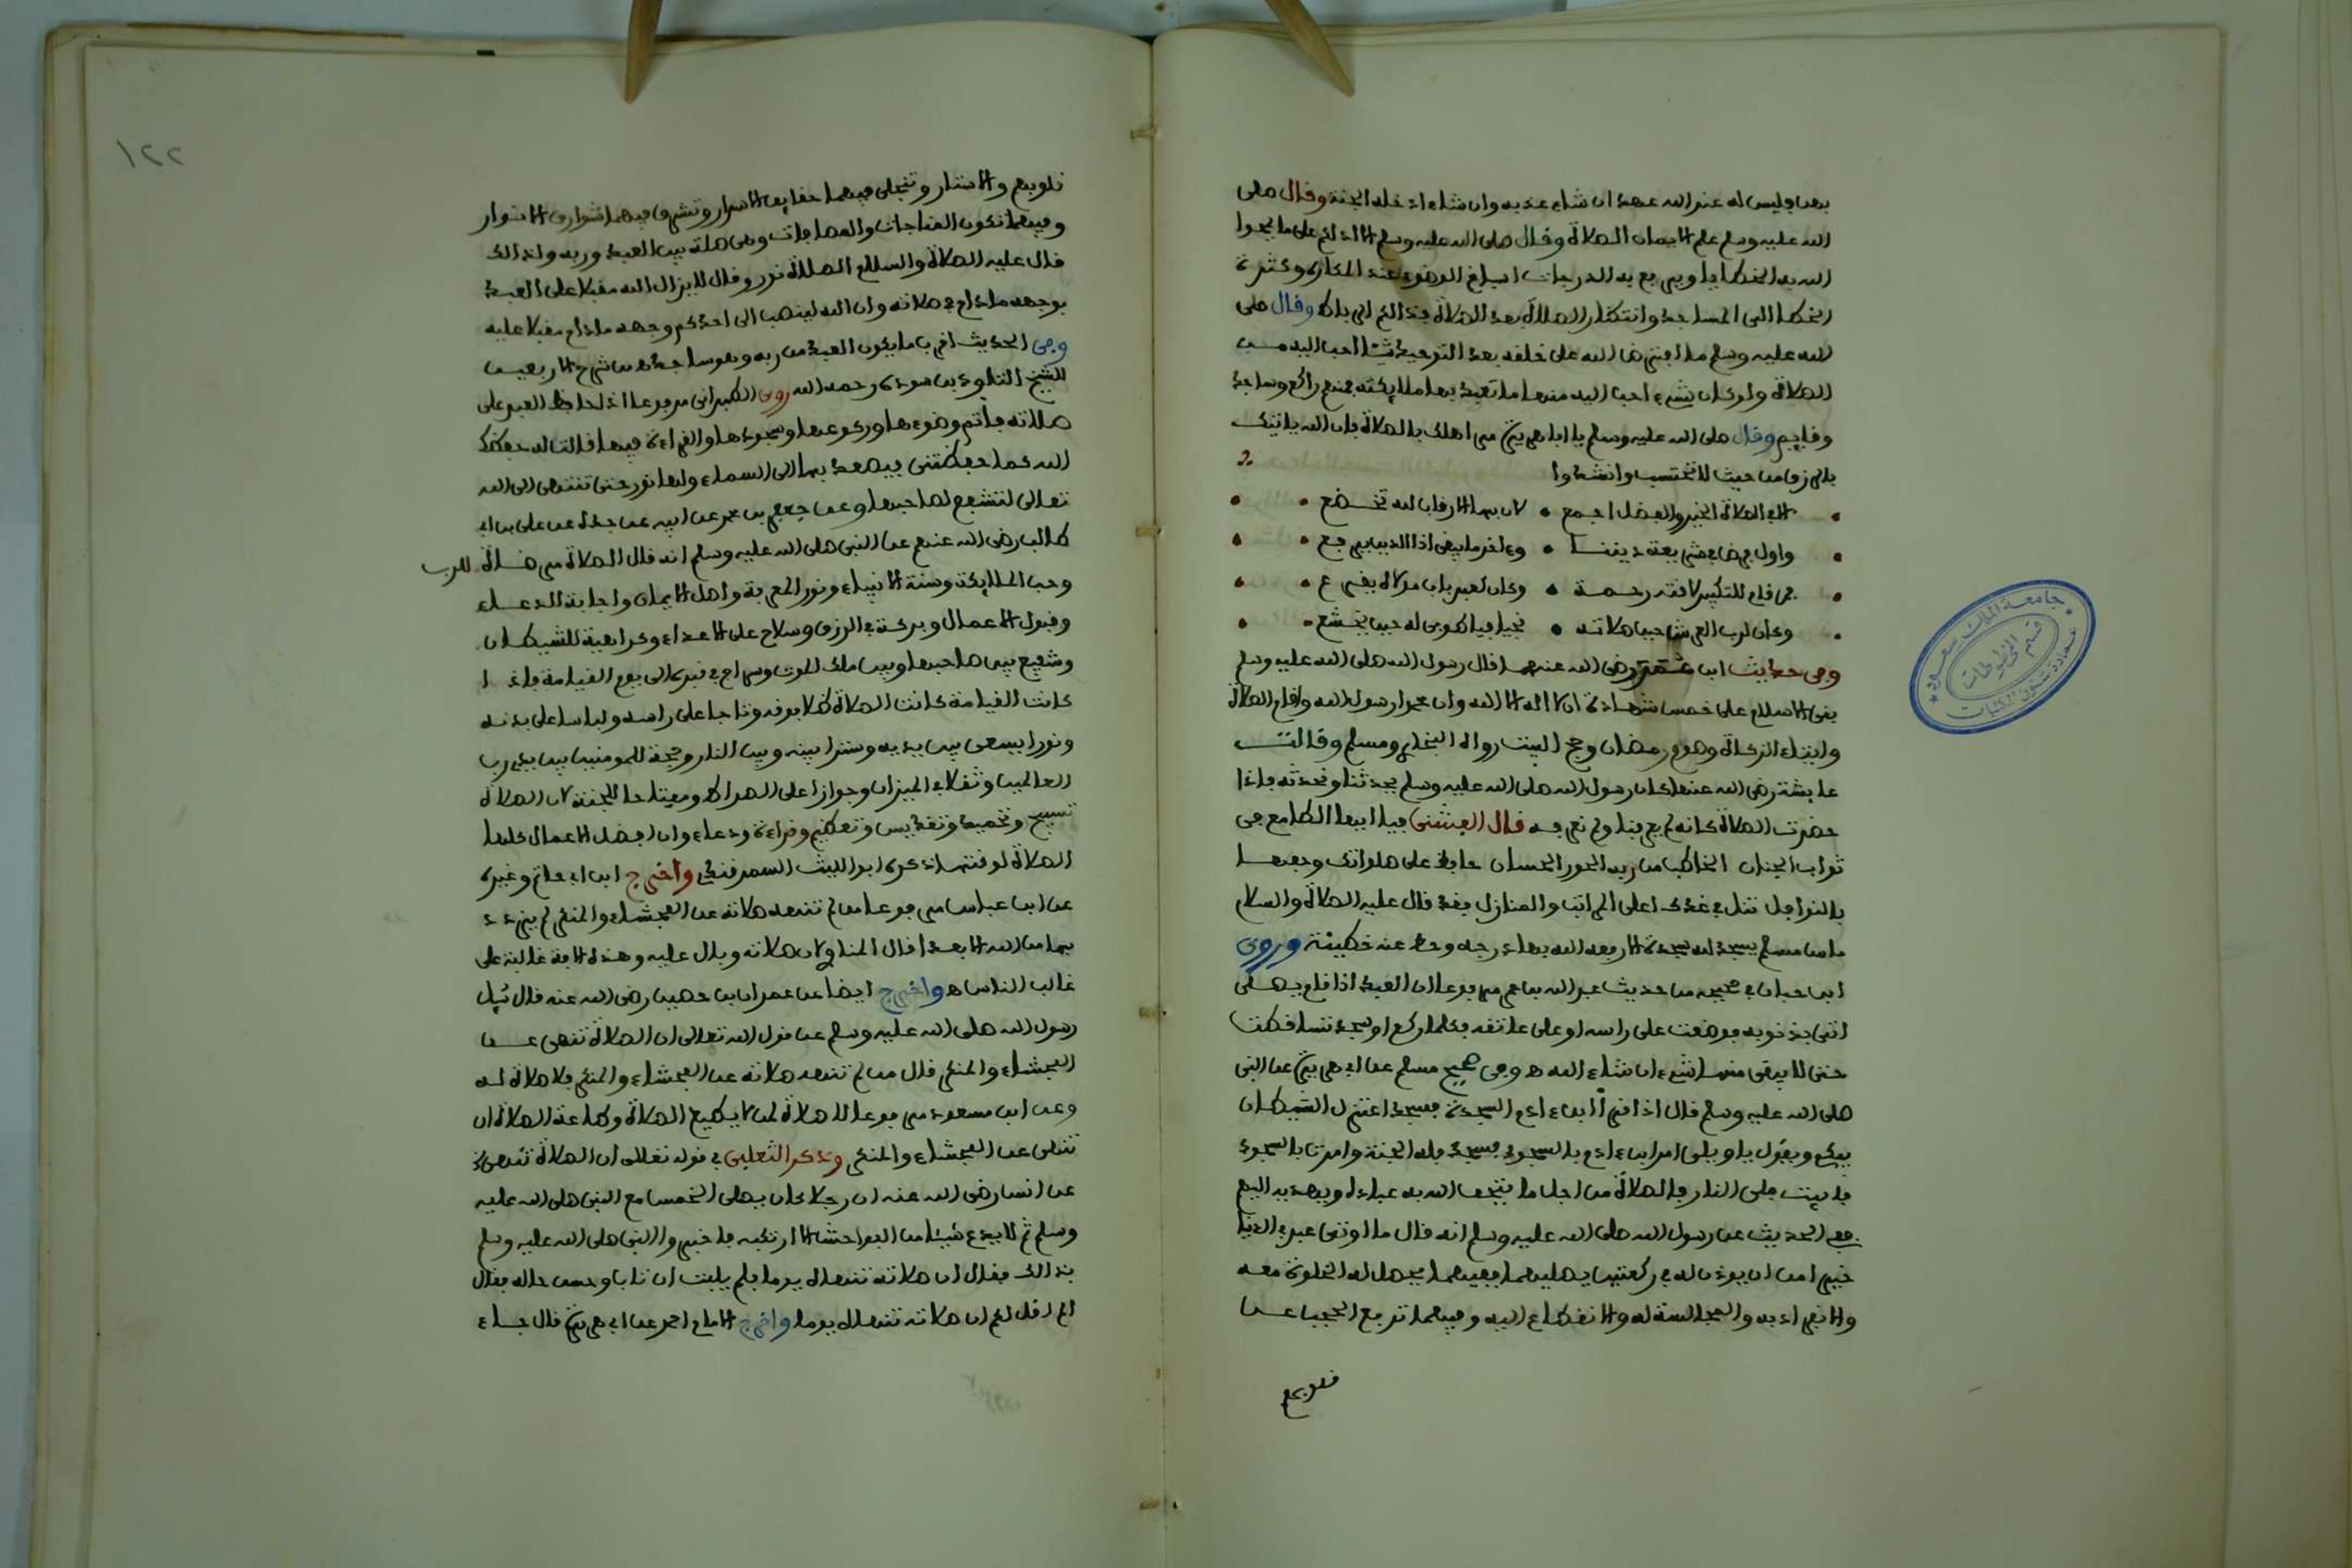 بهن فليس له عند الله عهد ان شاء عذبه وان شاء ادخله الجنة وقال صلى
الله عليه وسلم علم الايمان الصلاة وقال صلى الله عليه وسلم الا ادلكم على ما يمحوا
الله به الخطايا ويرفع به الدرجات اسباغ الوضوء عند المكاره وكثرة
الخطا الى المساجد وانتظار الصلاة بعد الصلاة فذالكم الرباط وقال صلى
الله عليه وسلم ما افترض الله على خلقه بعد التوحيد شيئا احب اليه من
الصلاة ولو كان شيء احب اليه منها ما تعبد بها ملايكته فمنهم راكع وساجد
وقايم وقال صلى الله عليه وسلم يا ابا هريرة مر اهلك بالصلاة فان الله ياتيك
بالرزق من حيث لا تحتسب وانشدوا
الا في الصلاة الخير والفضل اجمع • لان بها الارقاب لله تخضع
واول فرض في شريعة ديننا • وءاخر ما يبقى اذا الدين يرفع
فمن قام للتكبير لاقته رحمة • وكان كعبد باب مولاه يقرع
وكان لرب العرش حين صلاته • نجيا فيا طوبى له حين يخشع
وفى حديث ابن عمر رضى الله عنهما قال رسول الله صلى الله عليه وسلم
بنى الاسلام على خمس شهادة ان لا اله الا الله وان محمدا رسول الله واقام الصلاة
وايتاء الزكاة وصوم رمضان وحج البيت رواه البخارى ومسلم وقالت
عايشة رضى الله عنها كان رسول الله صلى الله عليه وسلم يحدثنا ونحدثه فاذا
حضرت الصلاة كانه لم يعرفنا ولم نعرفه قال الفشنى فيا ايها الطامع فى
ثواب الجنان الخاطب من ربه الحور الحسان حافظ على صلواتك وحفها
بالنوافل تنل فى غدك اعلى المراتب والمنازل فقد قال عليه الصلاة والسلام
ما من مسلم يسجد لله سجدة الا رفعه الله بها درجة وحط عنه خطيئة وروى
ابن حبان فى صحيحه من حديث عبد الله بن عمر مرفوعا ان العبد اذا قام يصلى
اتى بذنوبه فوضعت على راسه او على عاتقه فكلما ركع او سجد تساقطت
حتى لا يبقى منها شيء ان شاء الله ه وفى صحيح مسلم عن ابى هريرة عن النبى
صلى الله عليه وسلم قال اذا قرأ ابن ءادم السجدة فسجد اعتزل الشيطان
يبكى ويقول يا ويلى امر ابن ءادم بالسجود فسجد فله الجنة وامرت بالسجود
فابيت فلى النار فالصلاة من اجل ما يتحف الله به عباده ويهديه اليهم
ففى الحديث عن رسول الله صلى الله عليه وسلم انه قال ما اوتى عبد فى الدنيا
خير من ان يوذن له فى ركعتين يصليهما ففيهما يجعل له الخلوة معه
والانفراد به والمجالسة له والانقطاع اليه وفيهما ترفع الحجب عن
قلوبهم
١٢٢
قلوبهم والاستار وتتجلى فيهما حقايق الاسرار وتشرق فيهما شوارق الانوار
وفيهما تكون المناجات والمصافات وهى صلة بين العبد وربه ولذالك
قال عليه الصلاة والسلام الصلاة نور وقال لا يزال الله مقبلا على العبد
بوجهه ما دام فى صلاته وان الله لينصب الى احدكم وجهه ما دام مقبلا عليه
وفى الحديث اقرب ما يكون العبد من ربه وهو ساجد ه من شرح الاربعين
للشيخ التاودى بن سودة رحمه الله روى الطبرانى مرفوعا اذا حافظ العبد على
صلاته فاتم وضوءها وركوعها وسجودها والقراءة فيها قالت له حفظك
الله كما حفظتنى فيصعد بها الى السماء ولها نور حتى تنتهى الى الله
تعالى لتشفع لصاحبها وعن جعفر بن محمد عن ابيه عن جده عن على بن ابى
طالب رضى الله عنهم عن النبى صلى الله عليه وسلم انه قال الصلاة مرضاة للرب
وحب الملايكة وسنة الانبياء ونور المعرفة واصل الايمان واجابة الدعاء
وقبول الاعمال وبركة فى الرزق وسلاح على الاعداء وكراهية للشيطان
وشفيع بين صاحبها وبين ملك الموت وسراج فى قبره الى يوم القيامة فاذا
كانت القيامة كانت الصلاة ظلا فوقه وتاجا على راسه ولباسا على بدنه
ونورا يسعى بين يديه وسترا بينه وبين النار وحجة للمومنين بين يدى رب
العالمين وثقلا فى الميزان وجوازا على الصراط ومفتاحا للجنة لان الصلاة
تسبيح وتحميد وتقديس وتعظيم وقراءة ودعاء وان افضل الاعمال كلها
الصلاة لوقتها ذكره ابو الليث السمرقندى واخرج ابن ابى حاتم وغيره
عن ابن عباس مرفوعا من لم تنهه صلاته عن الفحشاء والمنكر لم يزدد
بها من الله الا بعدا قال المناوى لان صلاته وبال عليه وهذه الافة غالبة على
غالب الناس ه واخرج ايضا عن عمران بن حصين رضى الله عنه قال سئل
رسول الله صلى الله عليه وسلم عن قول الله تعالى ان الصلاة تنهى عن
الفحشاء والمنكر قال من لم تنهه صلاته عن الفحشاء والمنكر فلا صلاة له
وعن ابن مسعود مرفوعا لا صلاة لمن لا يطيع الصلاة وطاعة الصلاة ان
تنهى عن الفحشاء والمنكر وذكر الثعلبى فى قوله تعالى ان الصلاة تنهى الخ
عن انس رضى الله عنه ان رجلا كان يصلى الخمس مع النبى صلى الله عليه
وسلم ثم لا يدع شيئا من الفواحش الا ارتكبه فاخبر والنبى صلى الله عليه وسلم
بذالك فقال ان صلاته تنهاه يوما فلم يلبث ان تاب وحسن حاله فقال
الم اقل لكم ان صلاته تنهاه يوما واخرج الامام احمد عن ابى هريرة قال جاء
جامعة الملك سعود
قسم المخطوطات
عمادة شئون المكتبات